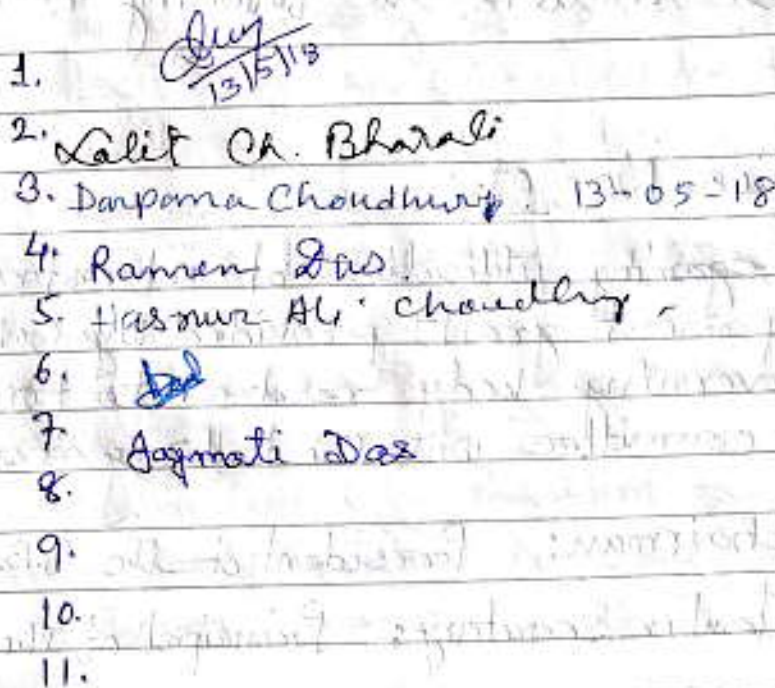 1.
13/5/18
2. Lalit Ch. Bharali
3. Darpana Choudhury 13-05-18
4. Ramen Das
5. Hasnur Ali Choudhury
6.
7. Jaymati Das
8.
9.
10.
11.